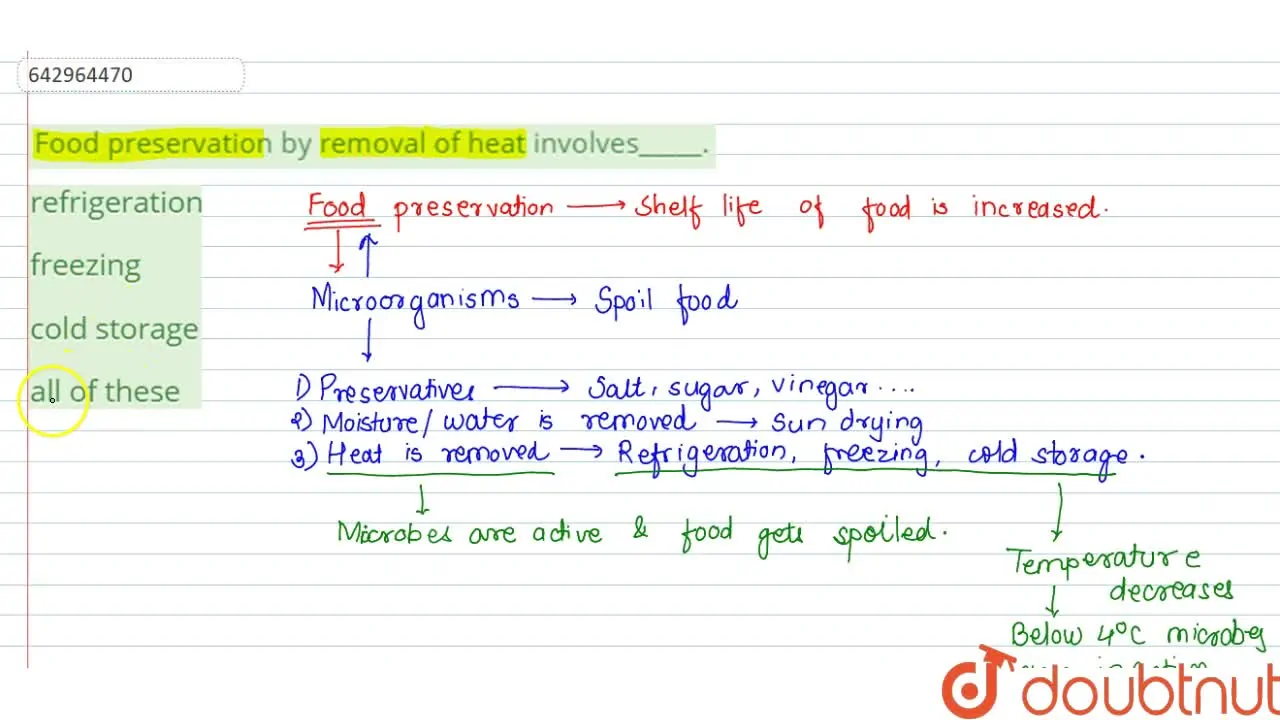 642964470
Food preservation by removal of heat involves_____.
refrigeration
freezing
cold storage
all of these
Food preservation → Shelf life of food is increased.
Microorganisms → Spoil food
1) Preservatives → Salt, sugar, vinegar ....
2) Moisture/ water is removed → Sun drying
3) Heat is removed → Refrigeration, freezing, cold storage.
Microbes are active & food gets spoiled.
Temperature
decreases
Below 4°C microbes
doubtnut